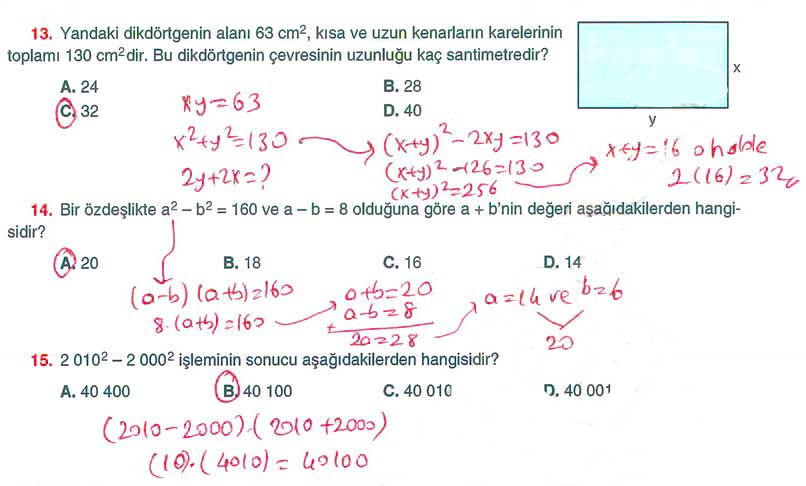 13. Yandaki dikdörtgenin alanı 63 cm², kısa ve uzun kenarların karelerinin
toplamı 130 cm² dir. Bu dikdörtgenin çevresinin uzunluğu kaç santimetredir?
A. 24 B. 28
C. 32 D. 40
x
y
xy=63
x²+y²=130
2y+2x=?
(x+y)²-2xy=130
(x+y)²-126=130
(x+y)²=256
x+y=16 o halde
2(16)=32
14. Bir özdeşlikte a² – b² = 160 ve a – b = 8 olduğuna göre a + b'nin değeri aşağıdakilerden hangi-
sidir?
A. 20 B. 18 C. 16 D. 14
(a-b)(a+b)=160
8.(a+b)=160
a+b=20
a-b=8
+
2a=28
a=14 ve b=6
20
15. 2 010² – 2 000² işleminin sonucu aşağıdakilerden hangisidir?
A. 40 400 B. 40 100 C. 40 010 D. 40 001
(2010-2000).(2010+2000)
(10).(4010)=40100